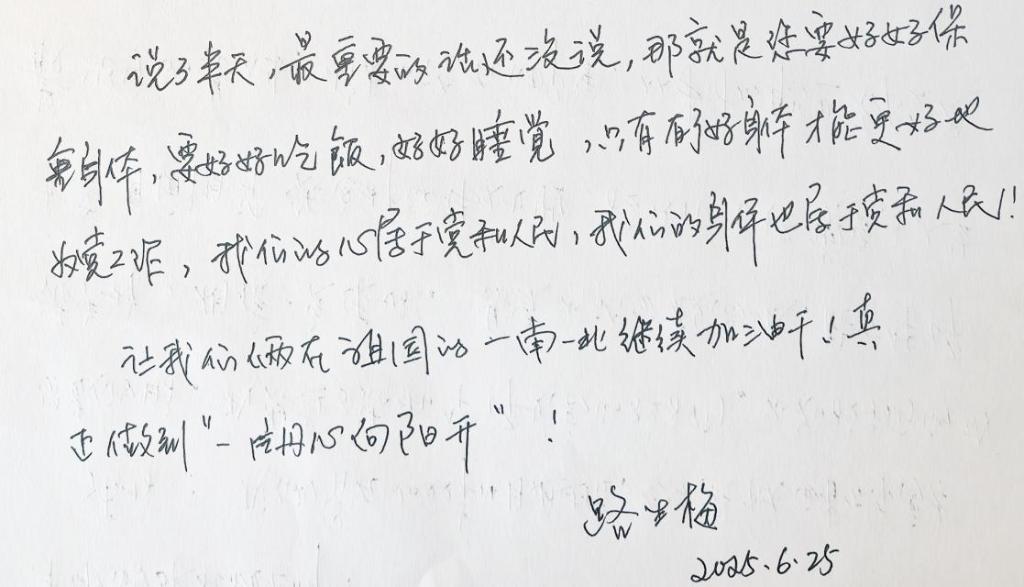 说了半天，最重要的话还没说，那就是您要好好保
重身体，要好好吃饭，好好睡觉，只有有了好身体才能更好地
继续工作，我们的心属于党和人民，我们的身体也属于党和人民！
让我们俩在祖国的一南一北继续加油干！真
正做到“一片丹心向阳开”！
路生梅
2025.6.25